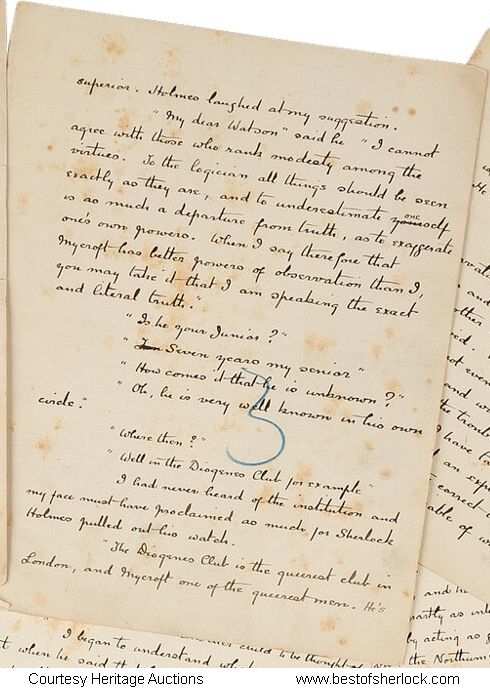 superior. Holmes laughed at my suggestion.
"My dear Watson" said he "I cannot
agree with those who rank modesty among the
virtues. To the logician all things should be seen
exactly as they are, and to underestimate oneself
is as much a departure from truth, as to exaggerate
one's own powers. When I say therefore that
Mycroft has better powers of observation than I,
you may take it that I am speaking the exact
and literal truth."
"Is he your Junior?"
"Seven years my senior"
"How comes it that he is unknown?"
"Oh, he is very well known in his own
circle."
"Where then?"
"Well in the Diogenes Club for example"
I had never heard of the institution and
my face must have proclaimed as much for Sherlock
Holmes pulled out his watch.
"The Diogenes Club is the queerest club in
London, and Mycroft one of the queerest men. He's
3
He
and
other
not even
and wo
the troub
I have
an exp
correct
able of
and in
by acting as
the Northum
could be thought
"I began to understand
when he said
Courtesy Heritage Auctions
www.bestofsherlock.com